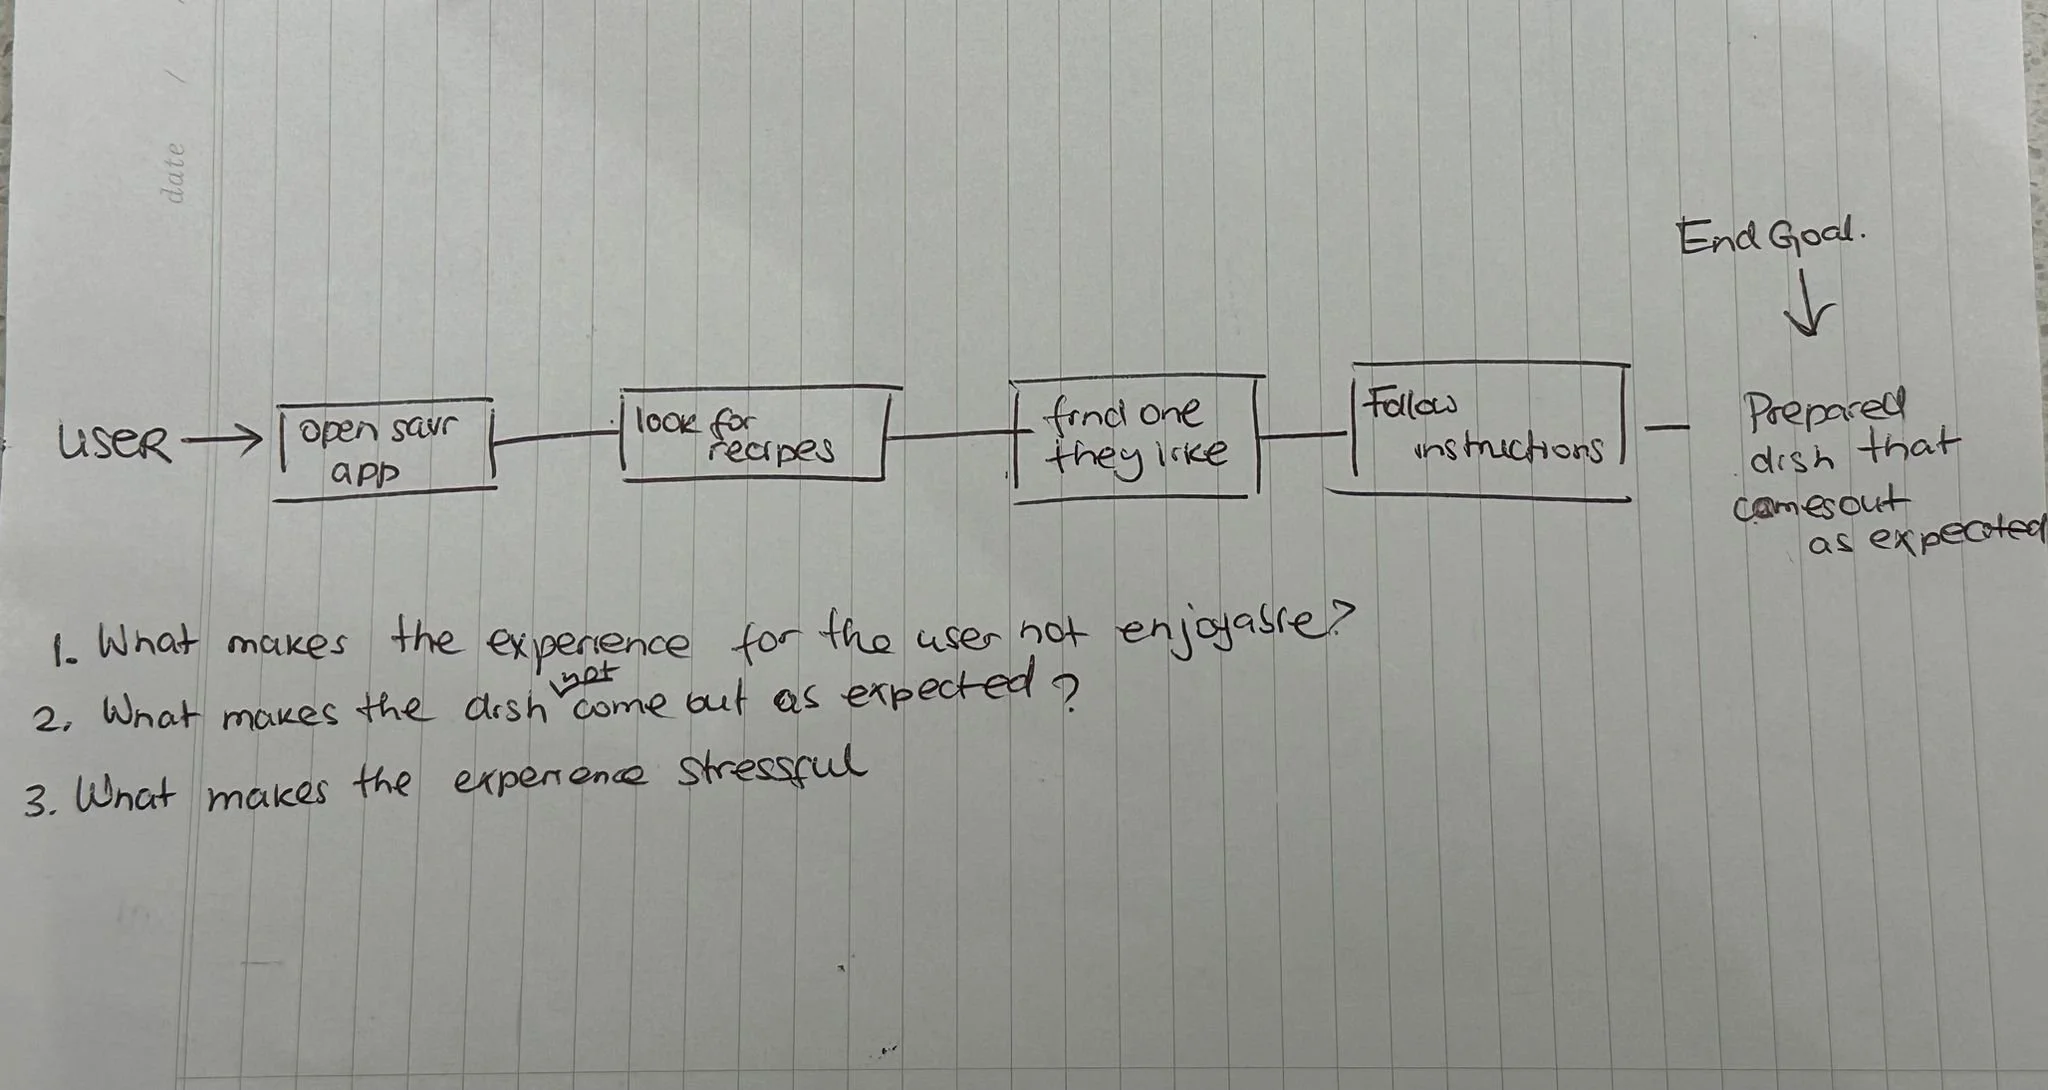 date /
End Goal.
USER
open savr
app
look for
recipes
find one
they like
Follow
instructions
Prepared
dish that
comes out
as expected
1. What makes the experience for the user not enjoyable?
2. What makes the dish not come out as expected?
3. What makes the experience stressful